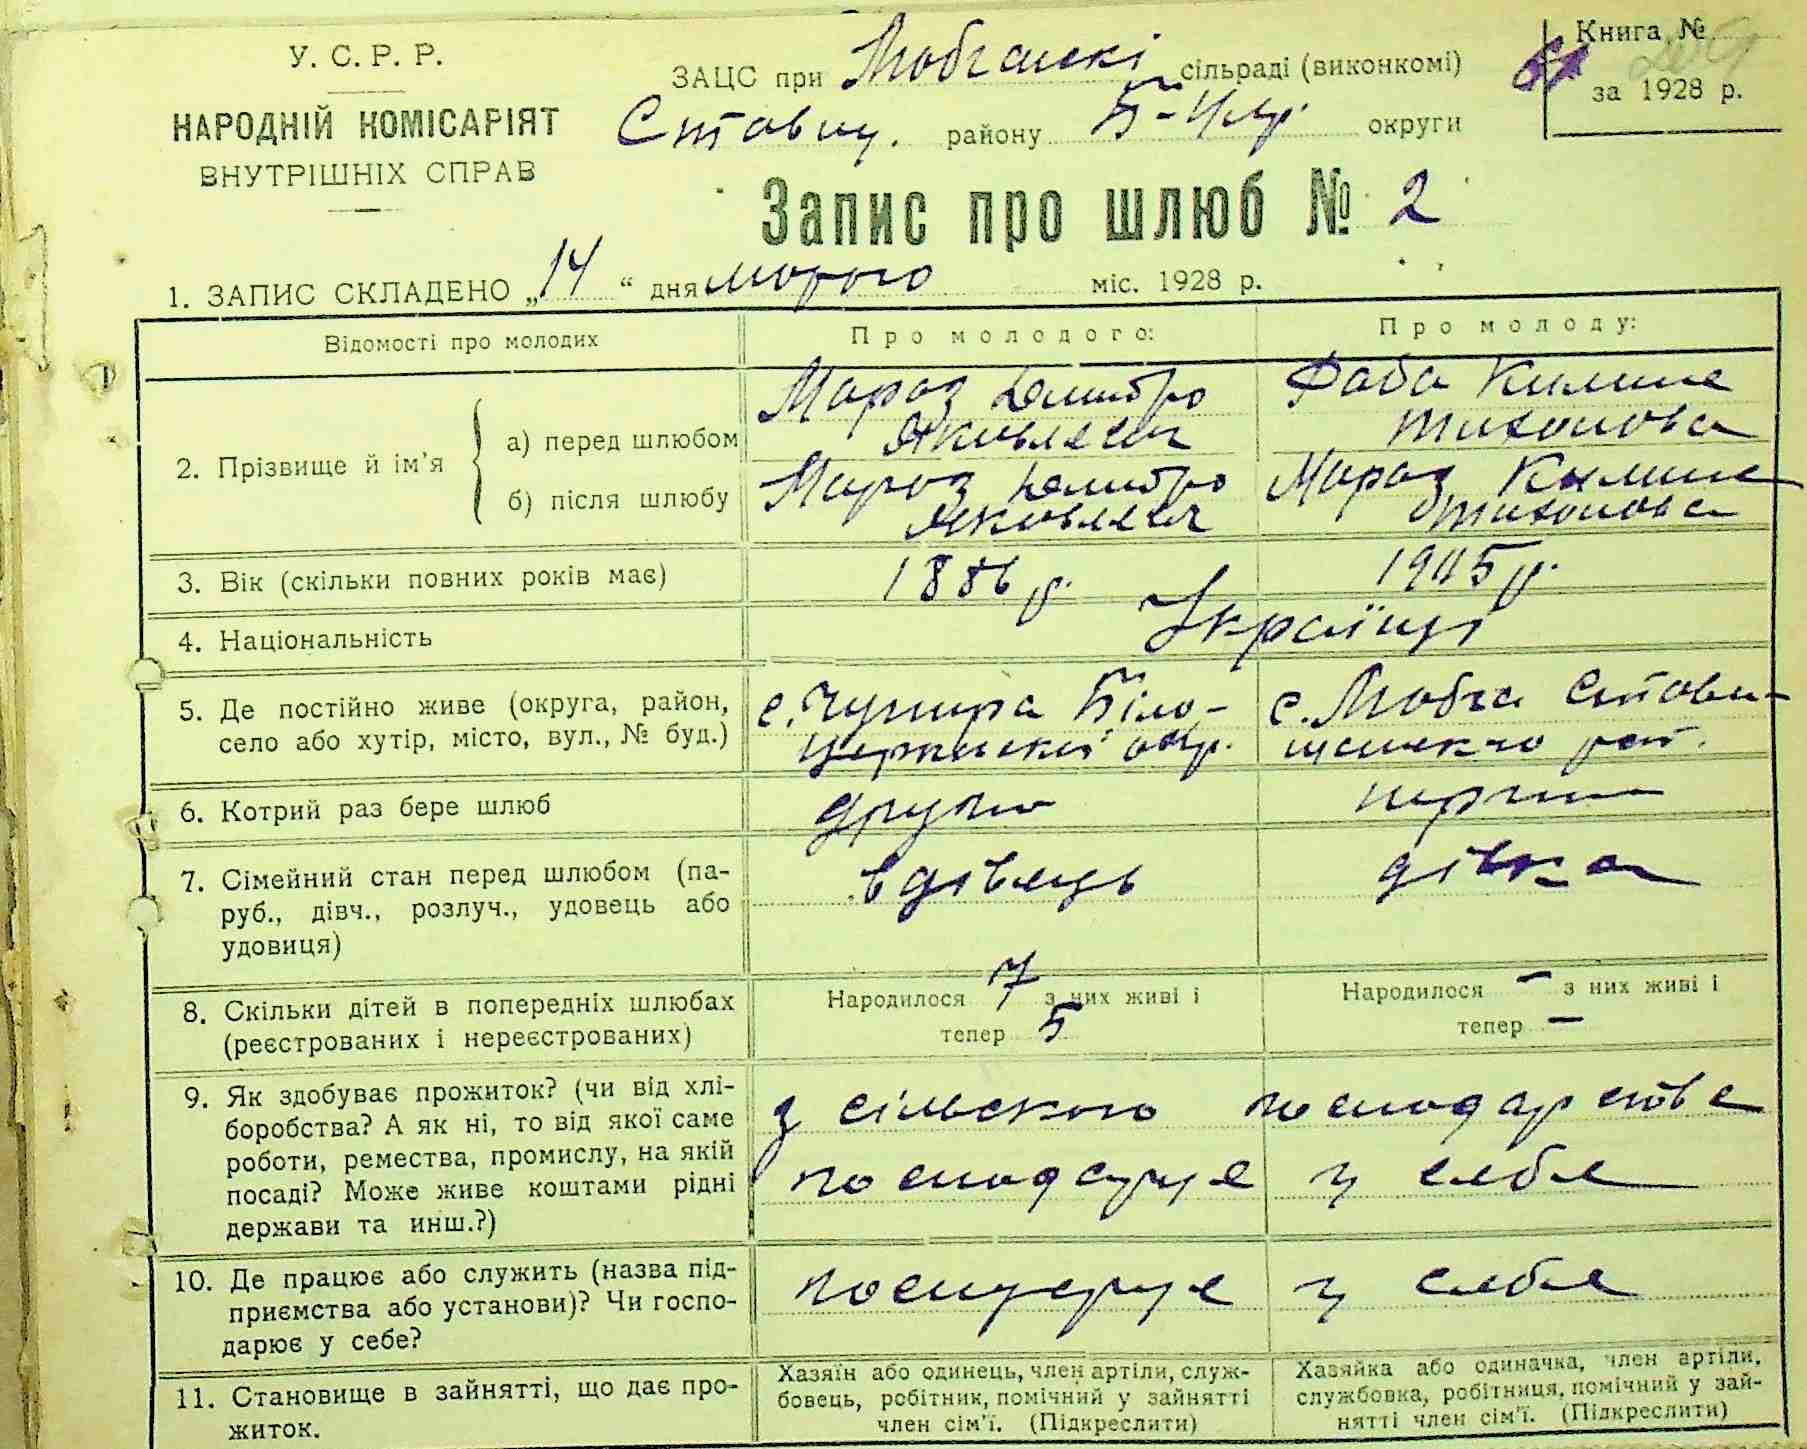 У. С. Р. Р.
НАРОДНІЙ КОМІСАРІЯТ
ВНУТРІШНІХ СПРАВ
ЗАЦС при сільраді (виконкомі)
Ставищ. району Б-Цер. округи
Книга №
за 1928 р.
Запис про шлюб № 2
1. ЗАПИС СКЛАДЕНО „14“ дня лютого міс. 1928 р.
Відомості про молодих
Про молодого:
Про молоду:
2. Прізвище й ім'я
а) перед шлюбом
Мороз Дмитро
Яковлевич
Баба Килина
Тихонова
б) після шлюбу
Мороз Дмитро
Яковлевич
Мороз Килина
Тихонова
3. Вік (скільки повних років має)
1886 р.
1905 р.
4. Національність
Українці
5. Де постійно живе (округа, район,
село або хутір, місто, вул., № буд.)
с. Чупира Біло-
церківської окр.
с. Стави-
щанського рай.
6. Котрий раз бере шлюб
другий
перший
7. Сімейний стан перед шлюбом (па-
руб., дівч., розлуч., удовець або
удовиця)
вдівець
дівка
8. Скільки дітей в попередніх шлюбах
(реєстрованих і нереєстрованих)
Народилося 7 з них живі і
тепер 5
Народилося – з них живі і
тепер –
9. Як здобуває прожиток? (чи від хлі-
боробства? А як ні, то від якої саме
роботи, ремества, промислу, на якій
посаді? Може живе коштами рідні
держави та инш.?)
з сільского господарства
господарує у себе
10. Де працює або служить (назва під-
приємства або установи)? Чи госпо-
дарює у себе?
господарує у себе
11. Становище в зайнятті, що дає про-
житок.
Хазяїн або одинець, член артіли, служ-
бовець, робітник, помічний у зайнятті
член сім'ї. (Підкреслити)
Хазяйка або одиначка, член артіли,
службовка, робітниця, помічний у зай-
нятті член сім'ї. (Підкреслити)